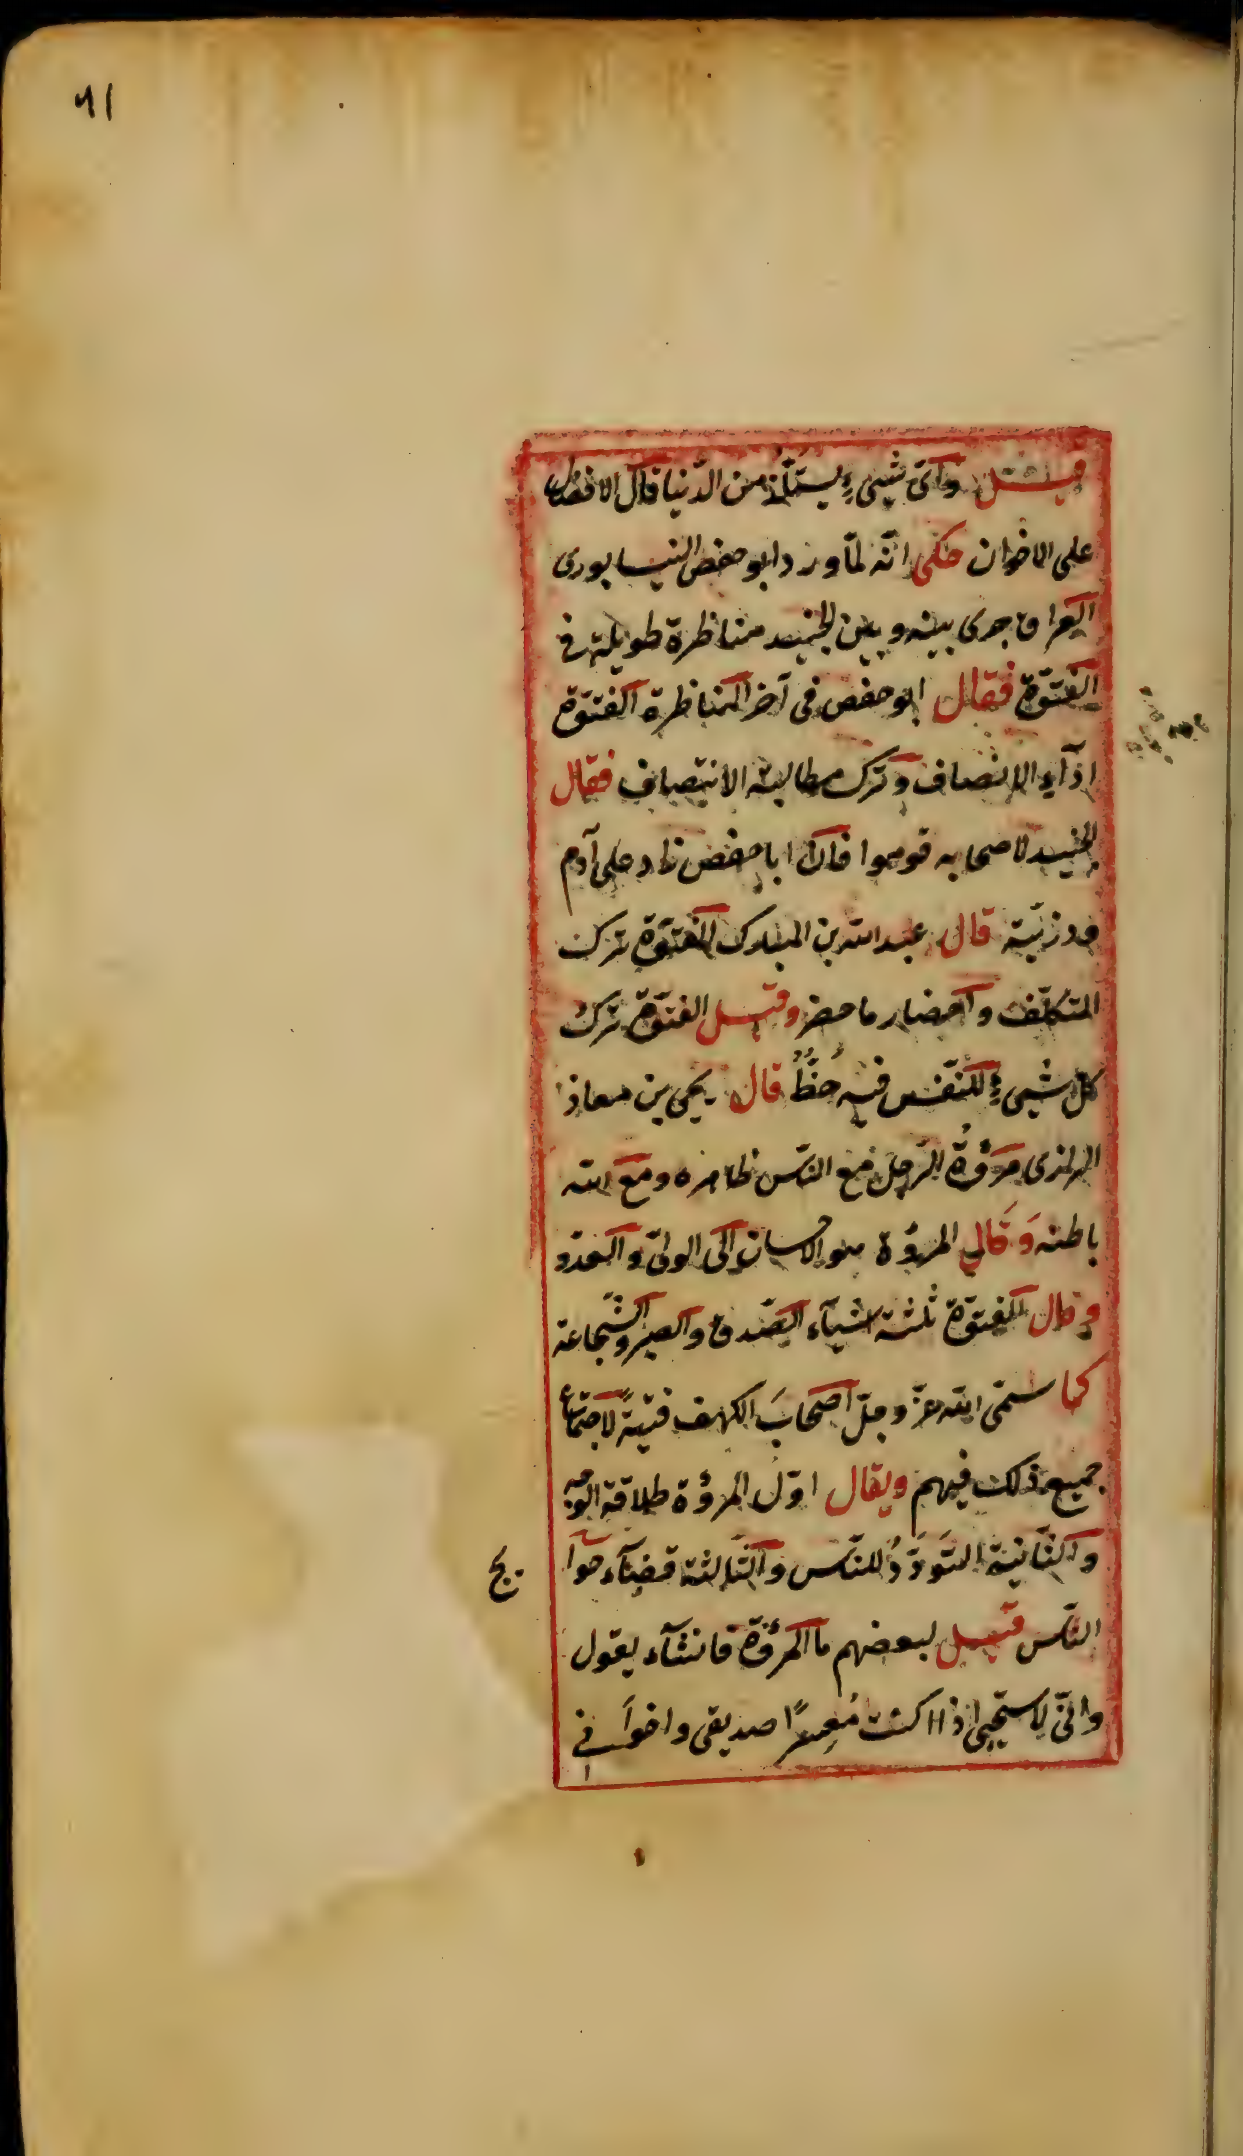 ٦١
قيل وأىّ شيىءٍ يستلذّ من الدّنيا قال الافضال
على الاخوان حكى انّه لمّا ورد ابو حفص النيسابورى
العراق جرى بينه وبين الجنيد مناظرة طويلة فى
الفتوّة فقال ابو حفص فى آخر المناظرة الفتوّة
ادآء الانصاف وترك مطالبة الانتصاف فقال
الجنيد لاصحابه قوموا فانّ ابا حفص زاد على آدم
وذرّيّته قال عبد الله بن المبارك الفتوّة ترك
التكلّف واحضار ما حضر وقيل الفتوّة ترك
كلّ شيىءٍ للنّفس فيه حُظٌّ قال يحيى بن معاذ
الرازى مروّة الرّجل مع النّاس ظاهره ومع الله
باطنه وَقَال المروّة هو الاحسان الى الولىّ والعدوّ
وقال الفتوّة ثلثة اشيآء الصّدق والصبر والشّجاعة
كما سمّى الله عزّ وجلّ اصحابَ الكهف فتيةً لاجتماع
جميع ذلك فيهم ويقال اوّل المروّة طلاقة الوجه
والثّانية التَودّدُ للنّاس والثّالثة قضآء حوآ
ئج
النّاس قيل لبعضهم ما المروّة فانشآء يقول
وانّى لاستحيى اذا كنت مُعسرًا صديقى واخوانى